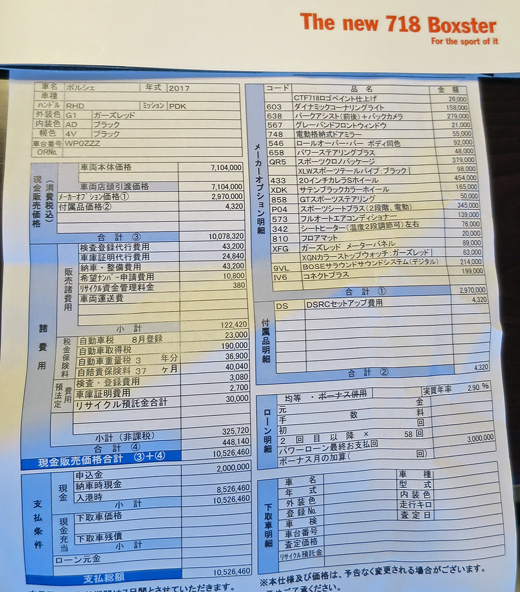 The new 718 Boxster
For the sport of it
車名 ポルシェ 年式 2017
車種
ハンドル RHD ミッション PDK
外装色 G1 ガーズレッド
内装色 AD ブラック
幌色 4V ブラック
車台番号 WP0ZZZ
ORNo.
現金販売価格 (消費税込)
車両本体価格 7,104,000
車両店頭引渡価格 7,104,000
メーカーオプション価格① 2,970,000
付属品価格② 4,320
合計 ③ 10,078,320
諸費用
販売諸費用
検査登録代行費用 43,200
車庫証明代行費用 24,840
納車・整備費用 43,200
希望ナンバー申請費用 10,800
リサイクル資金管理料金 380
車両運送費
小計 122,420
税金保険料
自動車税 8月登録 23,000
自動車取得税 190,000
自動車重量税 3 年分 36,900
自賠責保険料 37 ヶ月 40,040
預り法定費用
検査・登録費用 3,080
車庫証明費用 2,700
リサイクル預託金合計 30,000
小計(非課税) 325,720
合計 ④ 448,140
現金販売価格合計 ③+④ 10,526,460
支払条件
現金
申込金 2,000,000
納車時現金 8,526,460
入港時
小計 10,526,460
現金充当
下取車価格
下取車残債
小計
ローン元金
支払総額 10,526,460
コード 品名 金額
メーカーオプション明細
CTF718ロゴペイント仕上げ 26,000
603 ダイナミックコーナリングライト 158,000
638 パークアシスト(前後)+バックカメラ 279,000
567 グレーバンドフロントウィンドウ 21,000
748 電動格納式ドアミラー 55,000
546 ロールオーバーバー ボディ同色 92,000
658 パワーステアリングプラス 48,000
QR5 スポーツクロノパッケージ 379,000
XLWスポーツテールパイプ:ブラック 98,000
433 20インチカレラSホイール 454,000
XDK サテンブラックカラーホイール 165,000
858 GTスポーツステアリング 50,000
P04 スポーツシートプラス(2段階、電動) 345,000
573 フルオートエアコンディショナー 139,000
342 シートヒーター(温度2段調節可)左右 76,000
810 フロアマット 20,000
XFG ガーズレッド メーターパネル 89,000
XGNカラーストップウォッチ:ガーズレッド 63,000
9VL BOSEサラウンドサウンドシステム(デジタル) 214,000
IV6 コネクトプラス 199,000
合計 ① 2,970,000
付属品明細
DS DSRCセットアップ費用 4,320
合計 ② 4,320
ローン明細
均等・ボーナス併用 実質年率 2.90 %
元金
手数料
初回
2回目以降 × 58 回
パワーローン最終お支払回 3,000,000
ボーナス月の加算( 回)
下取車明細
車名 車種
年式 型式
外装色 内装色
登録No. 走行キロ
車検 査定日
車台番号
査定価格
リサイクル預託金
※本仕様及び価格は、予告なく変更される場合がございます。